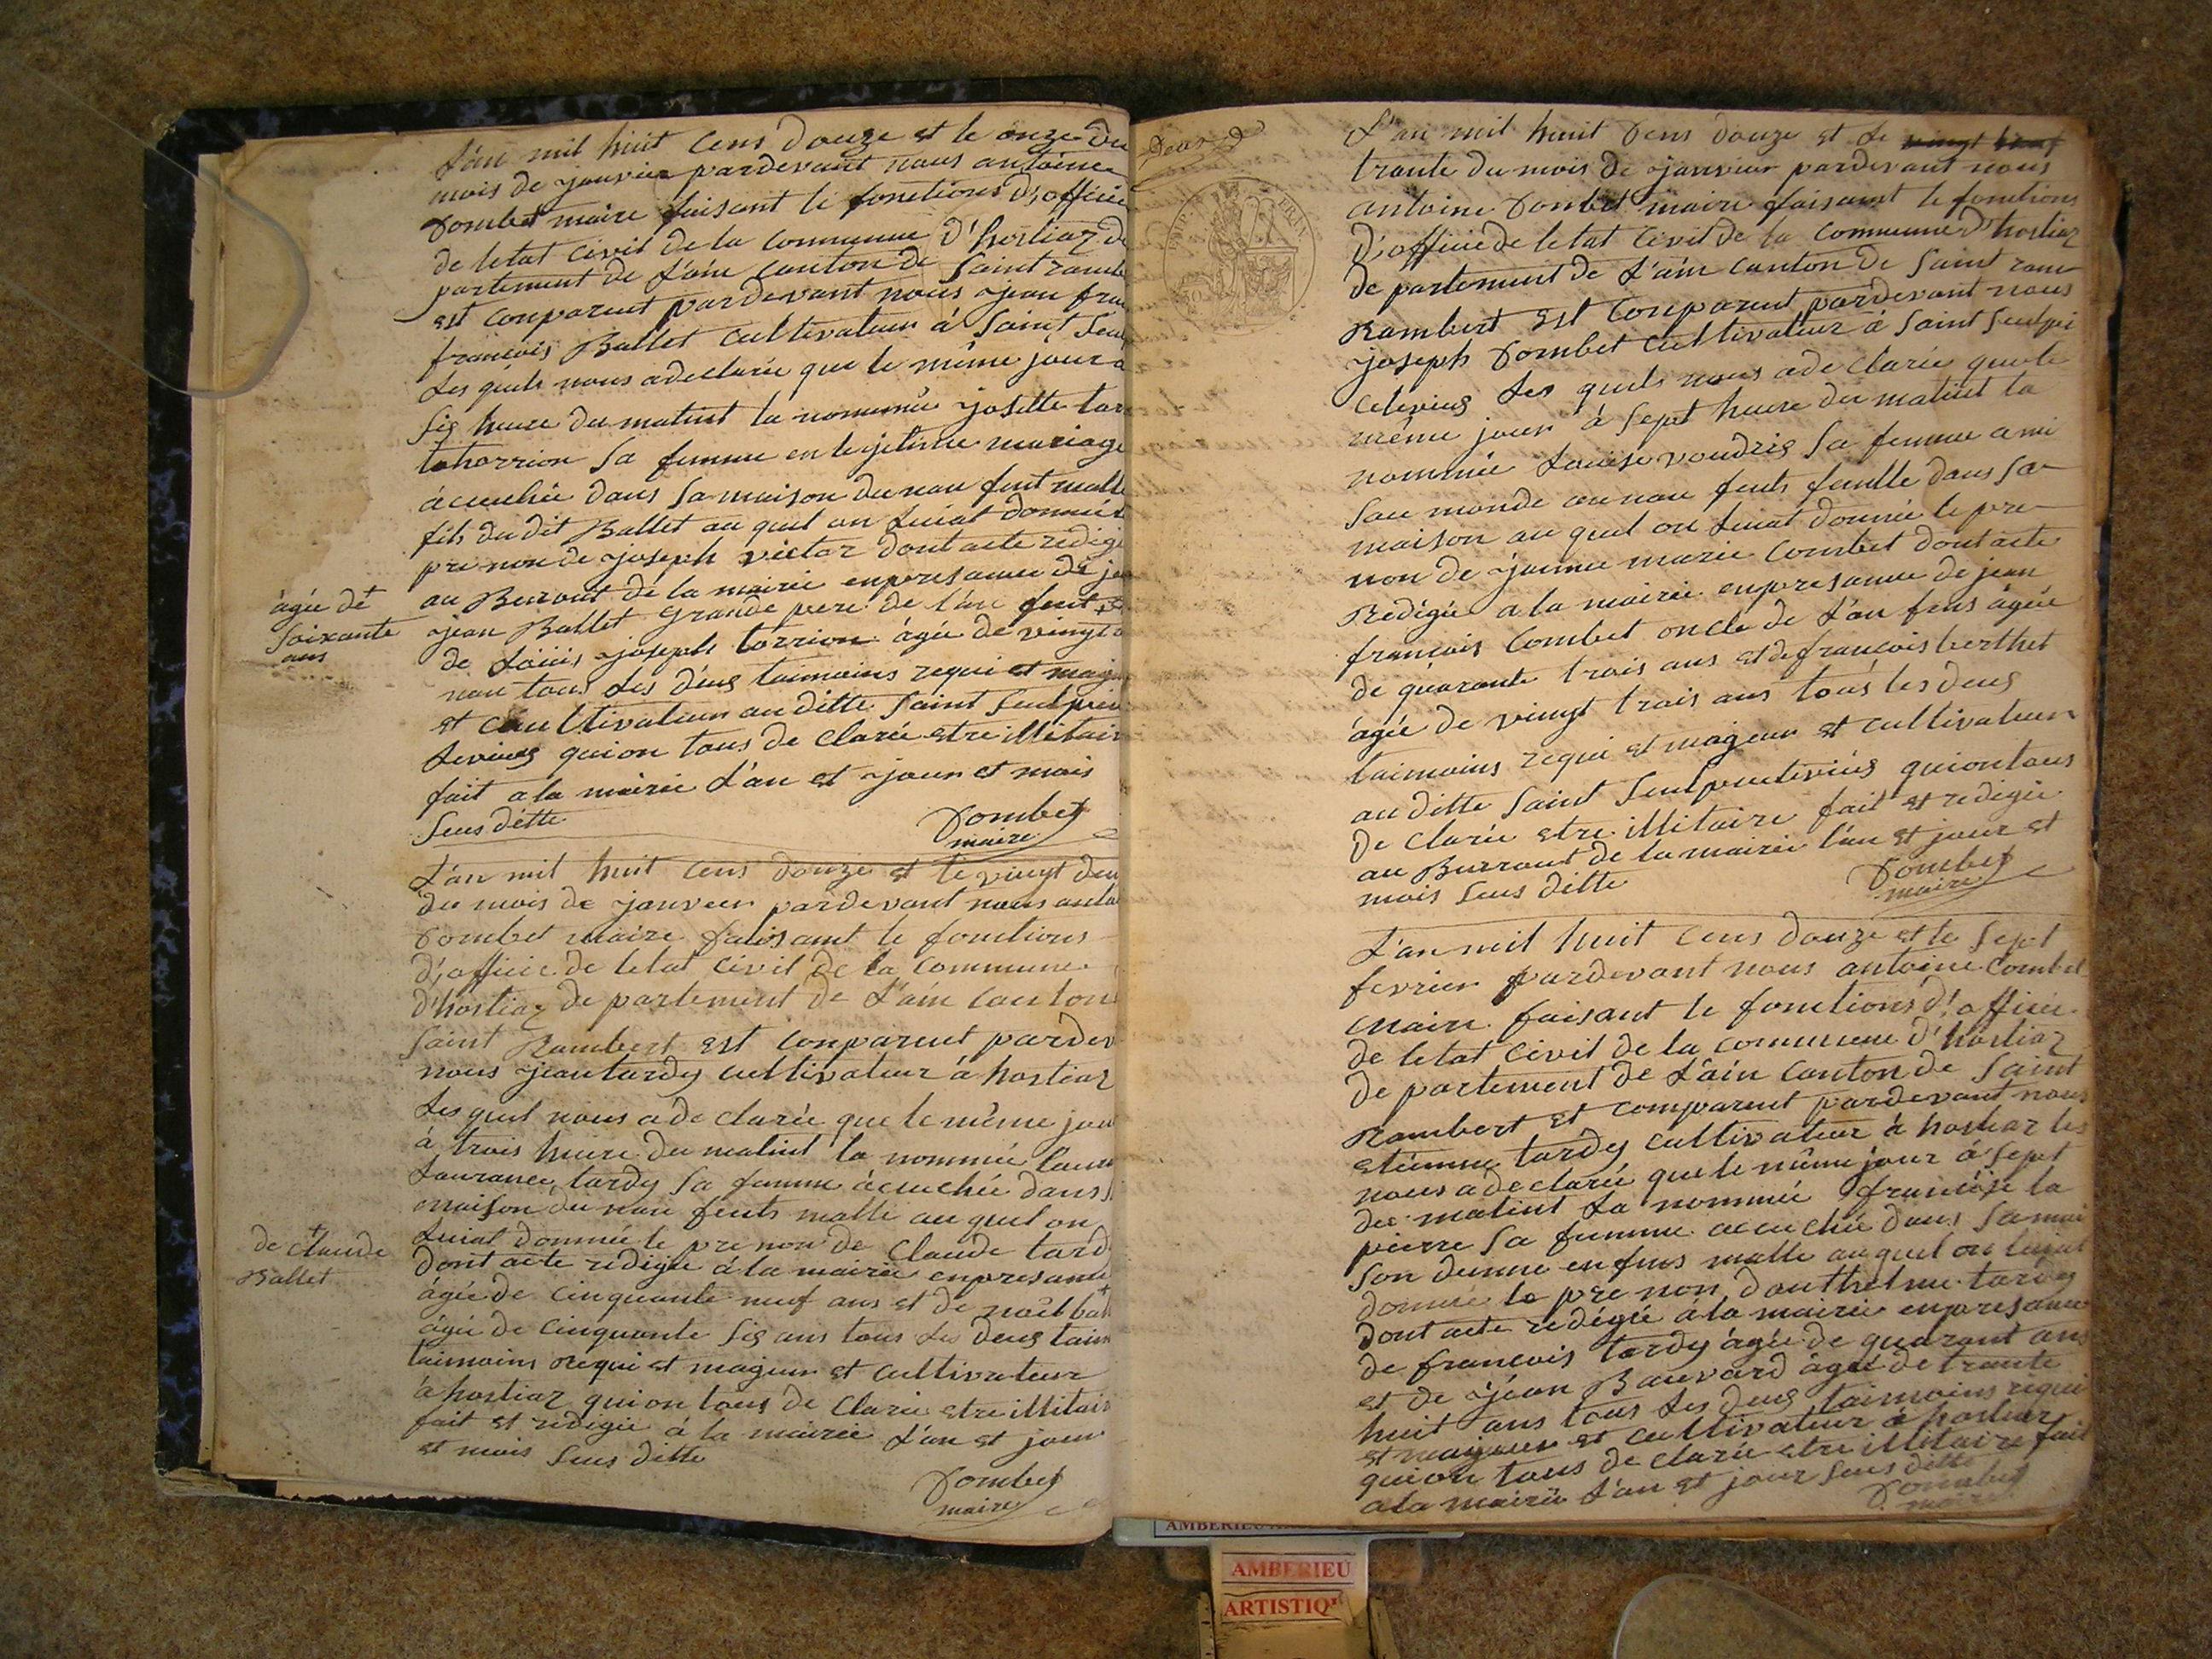 L'an mil huit cens douze et le onze du
mois de janvier pardevant nous antoine
Combet maire faisant le fonctions d'officie
de letat civil de la commune d'hostiaz de
partement de L'ain canton de Saint ramb
est conparent pardevant nous jean fran
francois Ballet cultivateur à Saint Seul
Les quels nous adeclarée que le même jour a
sis heure du matint la nommée josette tor
tohorrion sa femme en legitime mariage
àcuchée dans sa maison du nau fent malle
fils du dit Ballet au quel on luiat donnée
pre non de joseph victor dont acte redigé
au Buraut de la mairie enpresance de je
jean Ballet grande pere de l'an fent
de Loüis joseph torrion àgée de vingt
nau tous les deus taimoins requi et maj
et cultivateur au ditte Saint Seulpi
levieus qui on tous de clarée etre illitair
fait a la mairie L'an et jour et mois
Sus ditte
Combet
maire
àgée de
soixante
ans
L'an mil huit cens douze et le vingt deu
du mois de janvier pardevant nous anto
Combet maire faisant le fonctions
d'officie de letat civil de la commune
d'hostiaz de partement de L'ain canton
Saint Rambert est conparent pardev
nous jean tardy cultivateur à hostiaz
Les quel nous a de clarée que le même jou
à trois heure du matint la nommée
Laurance tardy sa femme àcuchée dans s
maison du nau fents malle au quel on
luiat donnée le pre non de Claude tard
dont acte redigée à la mairie enpresance
àgée de cinquante neuf ans et de noël bal
àgée de cinquante sis ans tous les deus taim
taimoins requi et majeur et cultivateur
à hostiaz qui on tous de clarée etre illitair
fait et redigée à la mairie L'an et jour
et mois Sus ditte
Combet
maire
de Claude
Ballet
L'an mil huit cens douze et le vingt
trante du mois de janvier pardevant nous
antoine Combet maire faisant le fonctions
d'officie de letat civil de la commune d'hostiaz
de partement de L'ain canton de Saint ram
Rambert est conparent pardevant nous
joseph Combet cultivateur à Saint Seulpi
celevieus Les quels nous ade clarée que le
même jour à sept heure du matint la
nommée Louise voudris sa femme a mi
sau monde au nau fents femlle dans sa
maison au quel on luiat donnée le pre
non de jeanne marie Combet dont acte
Redigée a la mairie enpresance de jean
francois Combet oncle de L'an fens àgée
de quarante trois ans et de francois berthet
àgée de vingt trois ans tous les deus
taimoins requi et majeur et cultivateur
au ditte Saint Seulpicelevieus qui on tous
de clarée etre illitaire fait et redigée
au Burraut de la mairie l'an et jour et
mois Sus ditte
Combet
maire
L'an mil huit cens douze et le sept
fevrier pardevant nous antoine Combet
maire faisant le fonctions d'officie
de letat civil de la commune d'hostiaz
de partement de L'ain canton de Saint
Rambert et comparent pardevant nous
etienne tardy cultivateur à hostiaz les
nous a declarée que le même jour à sept
du matint La nommée francoise la
pierre sa femme acuchée dans sa mai
son dunne enfens malle au quel on luiat
donnée le pre non danthelme tardy
dont acte redigée à la mairie enpresance
de francois tardy àgée de quarant ans
et de jean Bauvard àgée de trante
huit ans tous les deus taimoins requi
et majeur et cultivateur à hostiaz
qui on tous de clarée etre illitaire fait
a la mairie L'an et jour sus ditte
Combet
maire
AMBERIEU
ARTISTIQ